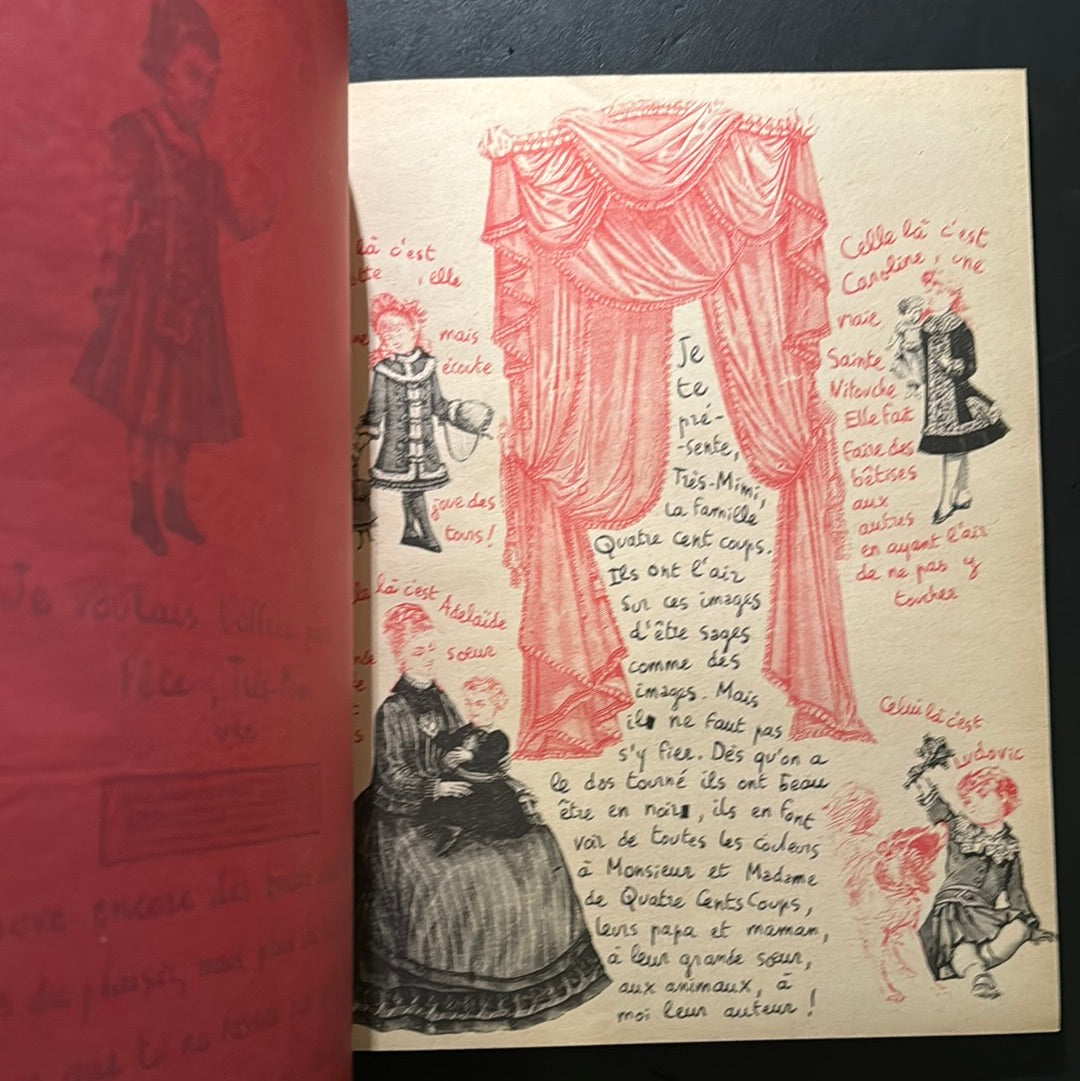 là c'est
, elle
mais
écoute
joue des
tours !
là c'est Adelaïde
sœur
Je
te
pré-
-sente,
Très-Mimi,
la famille
Quatre cent coups.
Ils ont l'air
sur ces images
d'être sages
comme des
images. Mais
il ne faut pas
s'y fier. Dès qu'on a
le dos tourné ils ont beau
être en noir, ils en font
voir de toutes les couleurs
à Monsieur et Madame
de Quatre Cents Coups,
leurs papa et maman,
à leur grande sœur,
aux animaux, à
moi leur auteur !
Celle là c'est
Caroline, une
vraie
Sainte
Nitouche
Elle fait
faire des
bêtises
aux
autres
en ayant l'air
de ne pas y
toucher
Celui là c'est
Ludovic
Je voulais
fête, Très
encore des